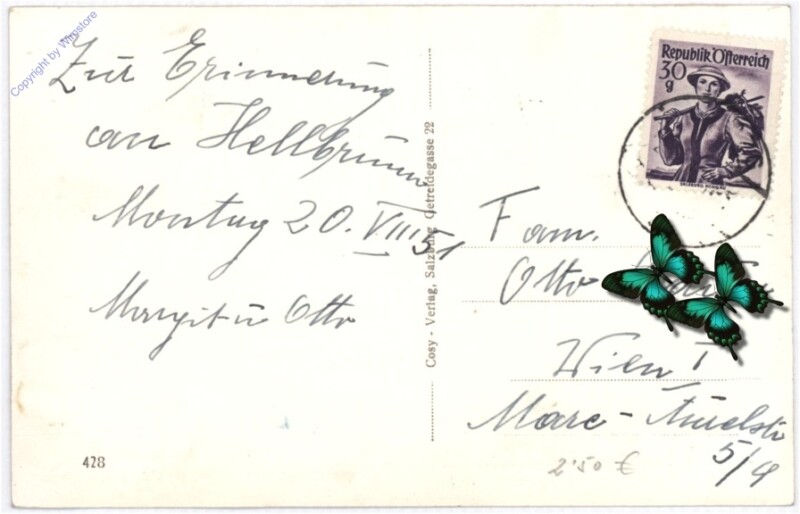 Copyright by Wigstore
Zur Erinnerung
an Hellbrunn
Montag 20. VIII 51
Margit u Otto
428
Cosy - Verlag, Salzburg Getreidegasse 22
Republik Österreich
30
g
Fam.
Otto
Wien I
Marc-
5/9
2'50 €